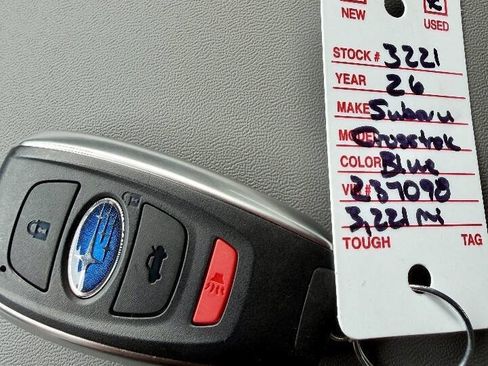 NEW USED
STOCK # 3221
YEAR 26
MAKE Subaru
MODEL Crosstrek
COLOR Blue
VIN# 237098
3,221 mi
TOUGH TAG